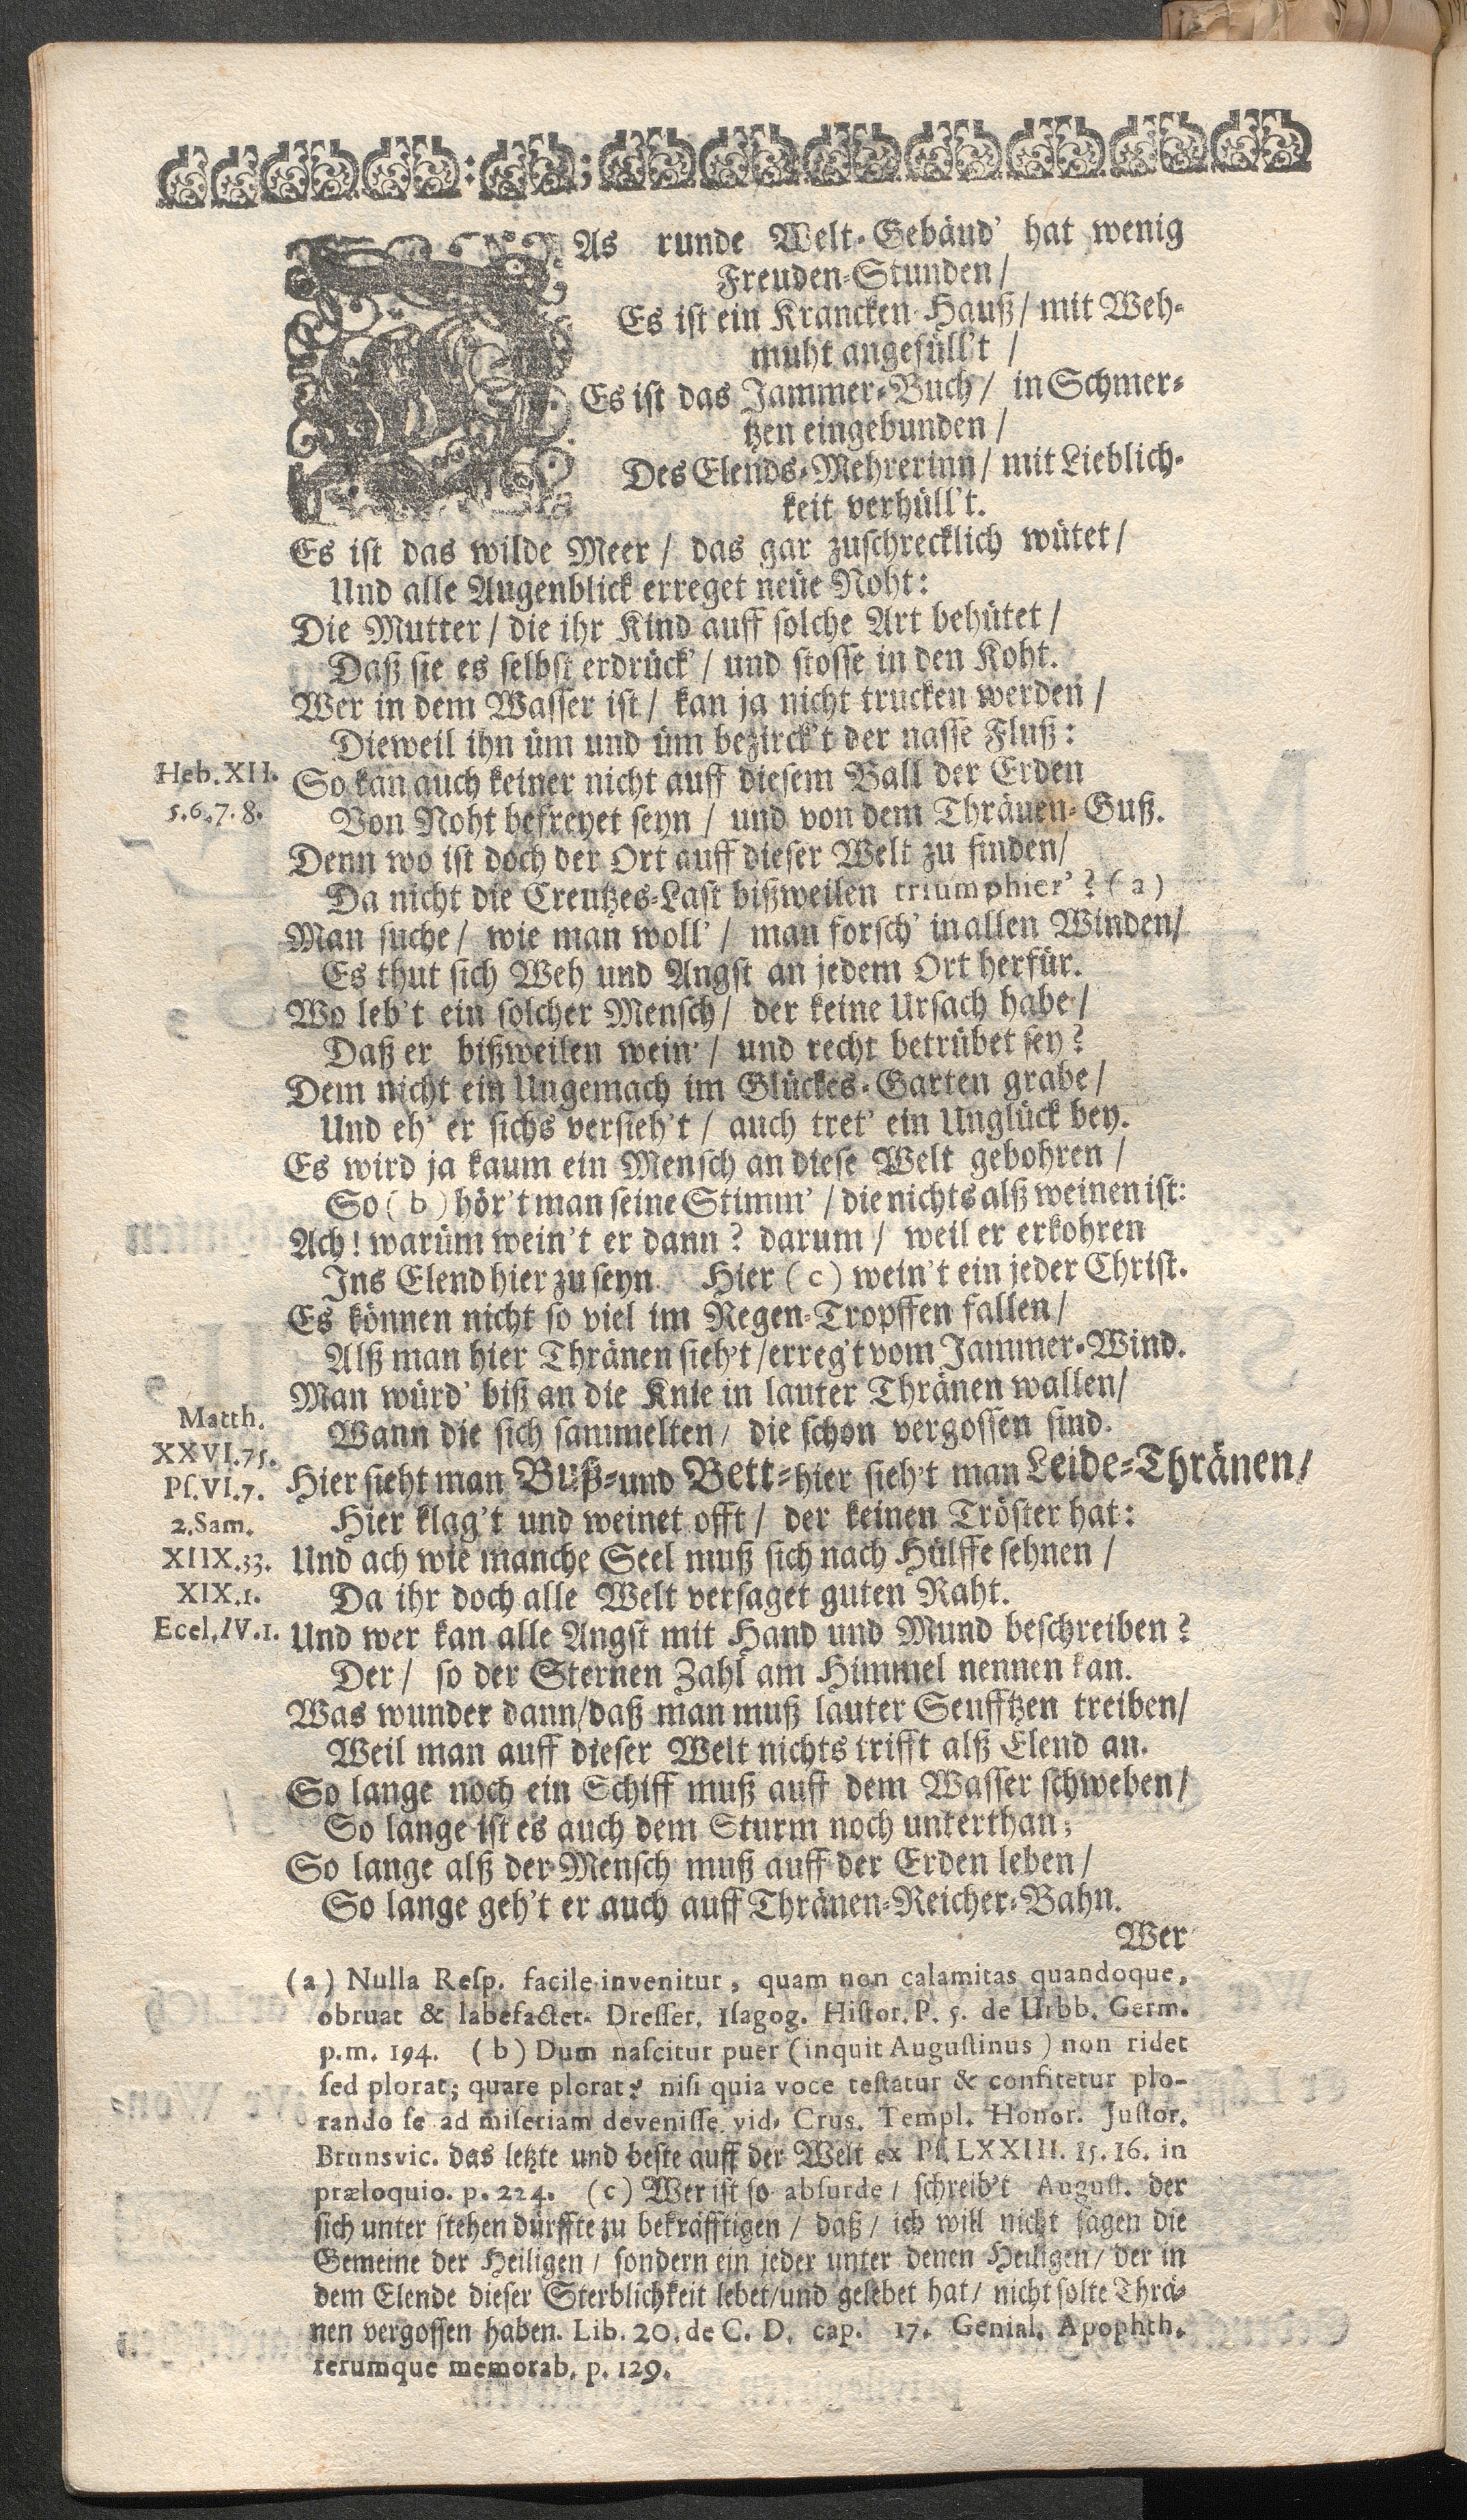 DAs runde Welt-Gebäud' hat wenig
Freuden-Stunden/
Es ist ein Krancken-Hauß/ mit Weh-
muht angefüll't /
Es ist das Jammer-Buch/ in Schmer-
tzen eingebunden /
Des Elends-Mehrerinn/ mit Lieblich-
keit verhüll't.
Es ist das wilde Meer / das gar zuschrecklich wütet/
Und alle Augenblick erreget neüe Noht:
Die Mutter / die ihr Kind auff solche Art behütet /
Daß sie es selbst erdrück' / und stosse in den Koht.
Wer in dem Wasser ist / kan ja nicht trucken werden /
Dieweil ihn üm und üm bezirck't der nasse Fluß:
Heb. XII. So kan auch keiner nicht auff diesem Ball der Erden
5.6.7.8. Von Noht befreyet seyn / und von dem Thränen-Guß.
Denn wo ist doch der Ort auff dieser Welt zu finden/
Da nicht die Creutzes-Last bißweilen triumphier' ? (a)
Man suche / wie man woll' / man forsch' in allen Winden/
Es thut sich Weh und Angst an jedem Ort herfür.
Wo leb't ein solcher Mensch/ der keine Ursach habe/
Daß er bißweilen wein' / und recht betrübet sey?
Dem nicht ein Ungemach im Glückes-Garten grabe/
Und eh' er sichs versieh't / auch tret' ein Unglück bey.
Es wird ja kaum ein Mensch an diese Welt gebohren /
So (b) hör't man seine Stimm' / die nichts alß weinen ist:
Ach! warüm wein't er dann? darum / weil er erkohren
Ins Elend hier zu seyn. Hier (c) wein't ein jeder Christ.
Es können nicht so viel im Regen-Tropffen fallen/
Alß man hier Thränen sieh't /erreg't vom Jammer-Wind.
Man würd' biß an die Knie in lauter Thränen wallen/
Matth. Wann die sich sammelten / die schon vergossen sind.
XXVI.75.
Ps. VI.7. Hier sieht man Buß-und Bett-hier sieh't man Leide-Thränen/
2.Sam. Hier klag't und weinet offt / der keinen Tröster hat:
XIIX.33. Und ach wie manche Seel muß sich nach Hülffe sehnen /
XIX.1. Da ihr doch alle Welt versaget guten Raht.
Eccl. IV.1. Und wer kan alle Angst mit Hand und Mund beschreiben?
Der / so der Sternen Zahl am Himmel nennen kan.
Was wunder dann/daß man muß lauter Seufftzen treiben/
Weil man auff dieser Welt nichts trifft alß Elend an.
So lange noch ein Schiff muß auff dem Wasser schweben/
So lange ist es auch dem Sturm noch unterthan;
So lange alß der Mensch muß auff der Erden leben/
So lange geh't er auch auff Thränen-Reicher-Bahn.
Wer
(a) Nulla Resp. facile invenitur, quam non calamitas quandoque,
obruat & labefactet. Dresser. Isagog. Histor. P. 5. de Urbb. Germ.
p.m. 194. (b) Dum nascitur puer (inquit Augustinus) non ridet
sed plorat; quare plorat? nisi quia voce testatur & confitetur plo-
rando se ad miseriam devenisse. vid. Crus. Templ. Honor. Justor.
Brunsvic. das letzte und beste auff der Welt ex Ps. LXXIII. 15. 16. in
præloquio. p. 224. (c) Wer ist so absurde / schreib't August. der
sich unter stehen dürffte zu bekräfftigen / daß / ich will nicht sagen die
Gemeine der Heiligen / sondern ein jeder unter denen Heiligen / der in
dem Elende dieser Sterblichkeit lebet/und gelebet hat / nicht solte Thrä-
nen vergossen haben. Lib. 20. de C. D. cap. 17. Genial. Apophth.
rerumque memorab. p. 129.